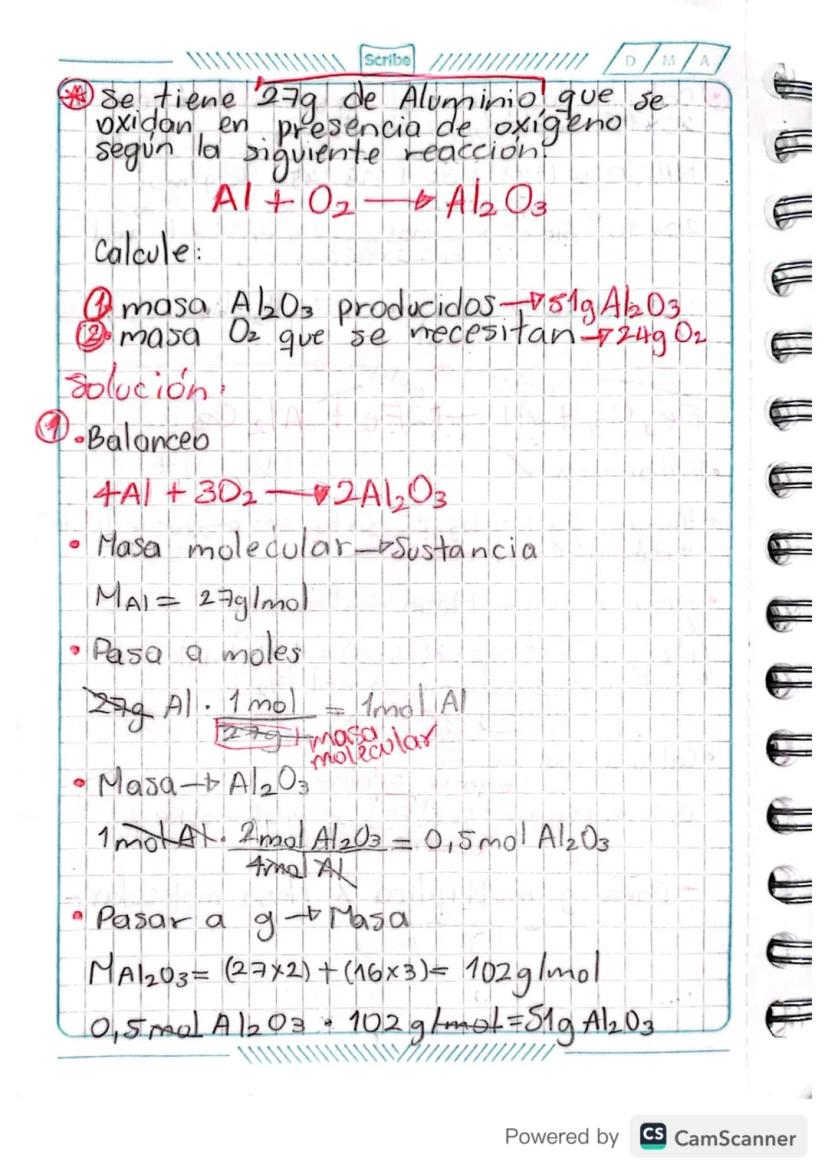 Scribe
D / M / A
Se tiene 27g de Aluminio que se
oxidan en presencia de oxígeno
según la siguiente reacción:
Al + O₂ → Al₂O₃
Calcule:
① masa Al₂O₃ producidos → 51g Al₂O₃
② masa O₂ que se necesitan → 24g O₂
Solución:
① • Balanceo
4Al + 3O₂ → 2Al₂O₃
• Masa molecular → Sustancia
MAl = 27g/mol
• Pasa a moles
27g Al · 1 mol = 1mol Al
27g → masa
molecular
• Masa → Al₂O₃
1mol Al · 2mol Al₂O₃ = 0,5mol Al₂O₃
4mol Al
• Pasar a g → Masa
MAl₂O₃ = (27x2) + (16x3) = 102g/mol
0,5mol Al₂O₃ · 102 g/mol = 51g Al₂O₃
Powered by CS CamScanner